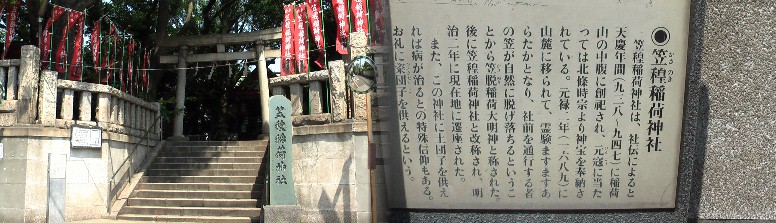 笠䅣稲荷神社
◉笠䅣稲荷神社
かさのぎ
笠䅣稲荷神社は、社伝によると
天慶年間(九三八~九四七)に稲荷
山の中腹に創祀され、元寇に当た
っては北条時宗より神宝を奉納さ
れている。元禄二年(一六八九)に
山麓に移られて、霊験ますますあ
らたかとなり、社前を通行する者
の笠が自然に脱げ落ちるというこ
とから笠脱稲荷大明神と称された。
後に笠䅣稲荷神社と改称され、明
治二年に現在地に遷座された。
また、この神社に土団子を供え
れば病が治るとの特殊信仰もある。
お礼に粢団子を供えるという。